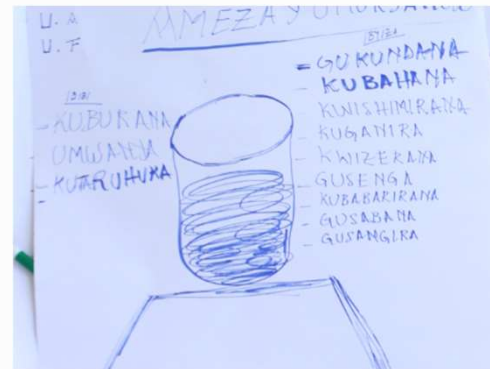 U. A
U. F
- KUBURANA
UMWANDA
- KUTARUHUKA
-
= GUKUNDANA
- KUBAHANA
KWISHIMIRANA
- KUGANIRA
- KWIZERANA
- GUSENGA
- KUBABARIRANA
- GUSABANA
- GUSANGIRA
-